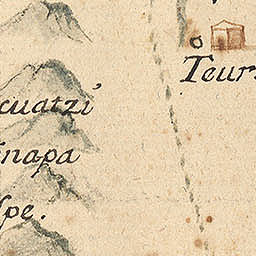 cuatzi
inapa
lpe.
Teur